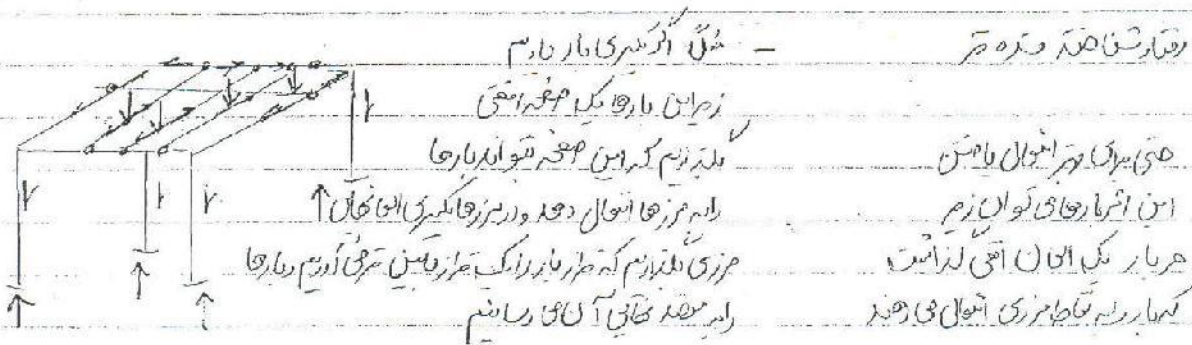 رفتار شناخته شده تر
حتی برای بهتر انتقال یافتن
این اثر بارهای توان زیر
هر بار یک المان افقی گذاشت
که بار را به نقاط مرزی انتقال می دهند
- مثلاً اگر یکسری بار داریم
زیر این بارها یک صفحه افقی
بگذاریم که این صفحه بتواند بارها
را به مرزها انتقال دهد و در مرزها یکسری المان های
مرزی بگذاریم که تراز بار را یک تراز پایین تر می آوریم و بارها
را به مقصد نهایی آن می رسانیم